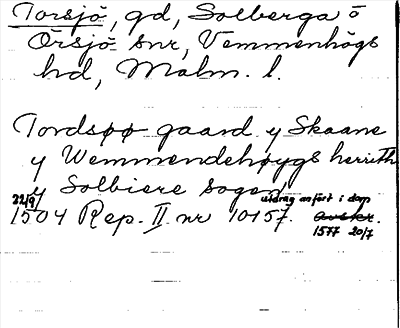 Torsjö, gd, Solberga o
Örsjö snr, Vemmenhögs
hd, Malm. l.
Tordsøø gaard y Skaane
y Wemmendehøygs herrith
y Solbiere sogen
22/9 utdrag anfört i dom
1504 Rep. II nr 10157. avskr.
1577 20/7